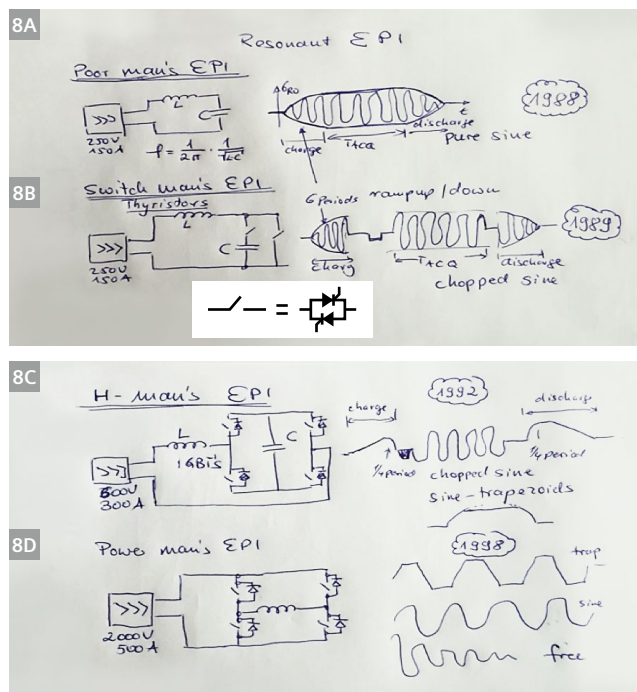 8A
Resonant EPI
Poor man's EPI
L
C
>>>
250V
150A
f = 1/2π · 1/√LC
GRO
t
charge
TACQ
discharge
pure sine
1988
8B
Switch man's EPI
Thyristors
L
C
>>>
250V
150A
6 Periods rampup/down
Charg
TACQ
discharge
chopped sine
1989
=
8C
H-man's EPI
1992
L
C
IGBTs
>>>
600V
300A
charge
discharge
1/4 period
1/4 period
chopped sine
sine-trapezoids
8D
Power man's EPI
1998
>>>
2000V
500A
trap
sine
free